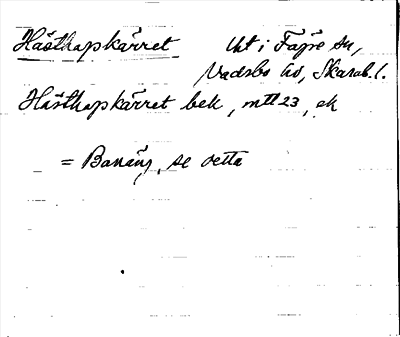 Hästhapskärret Ukt i Fägre sn,
Vadsbo hd, Skarab. l.
Hästhapskärret bek, mtl 23, ek
= Banäng, se detta